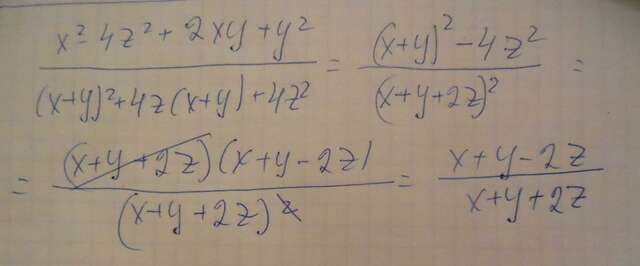 (x² - 4z² + 2xy + y²) / ((x+y)² + 4z(x+y) + 4z²) = ((x+y)² - 4z²) / (x+y+2z)² =
= ((x+y+2z)(x+y-2z)) / (x+y+2z)² = (x+y-2z) / (x+y+2z)